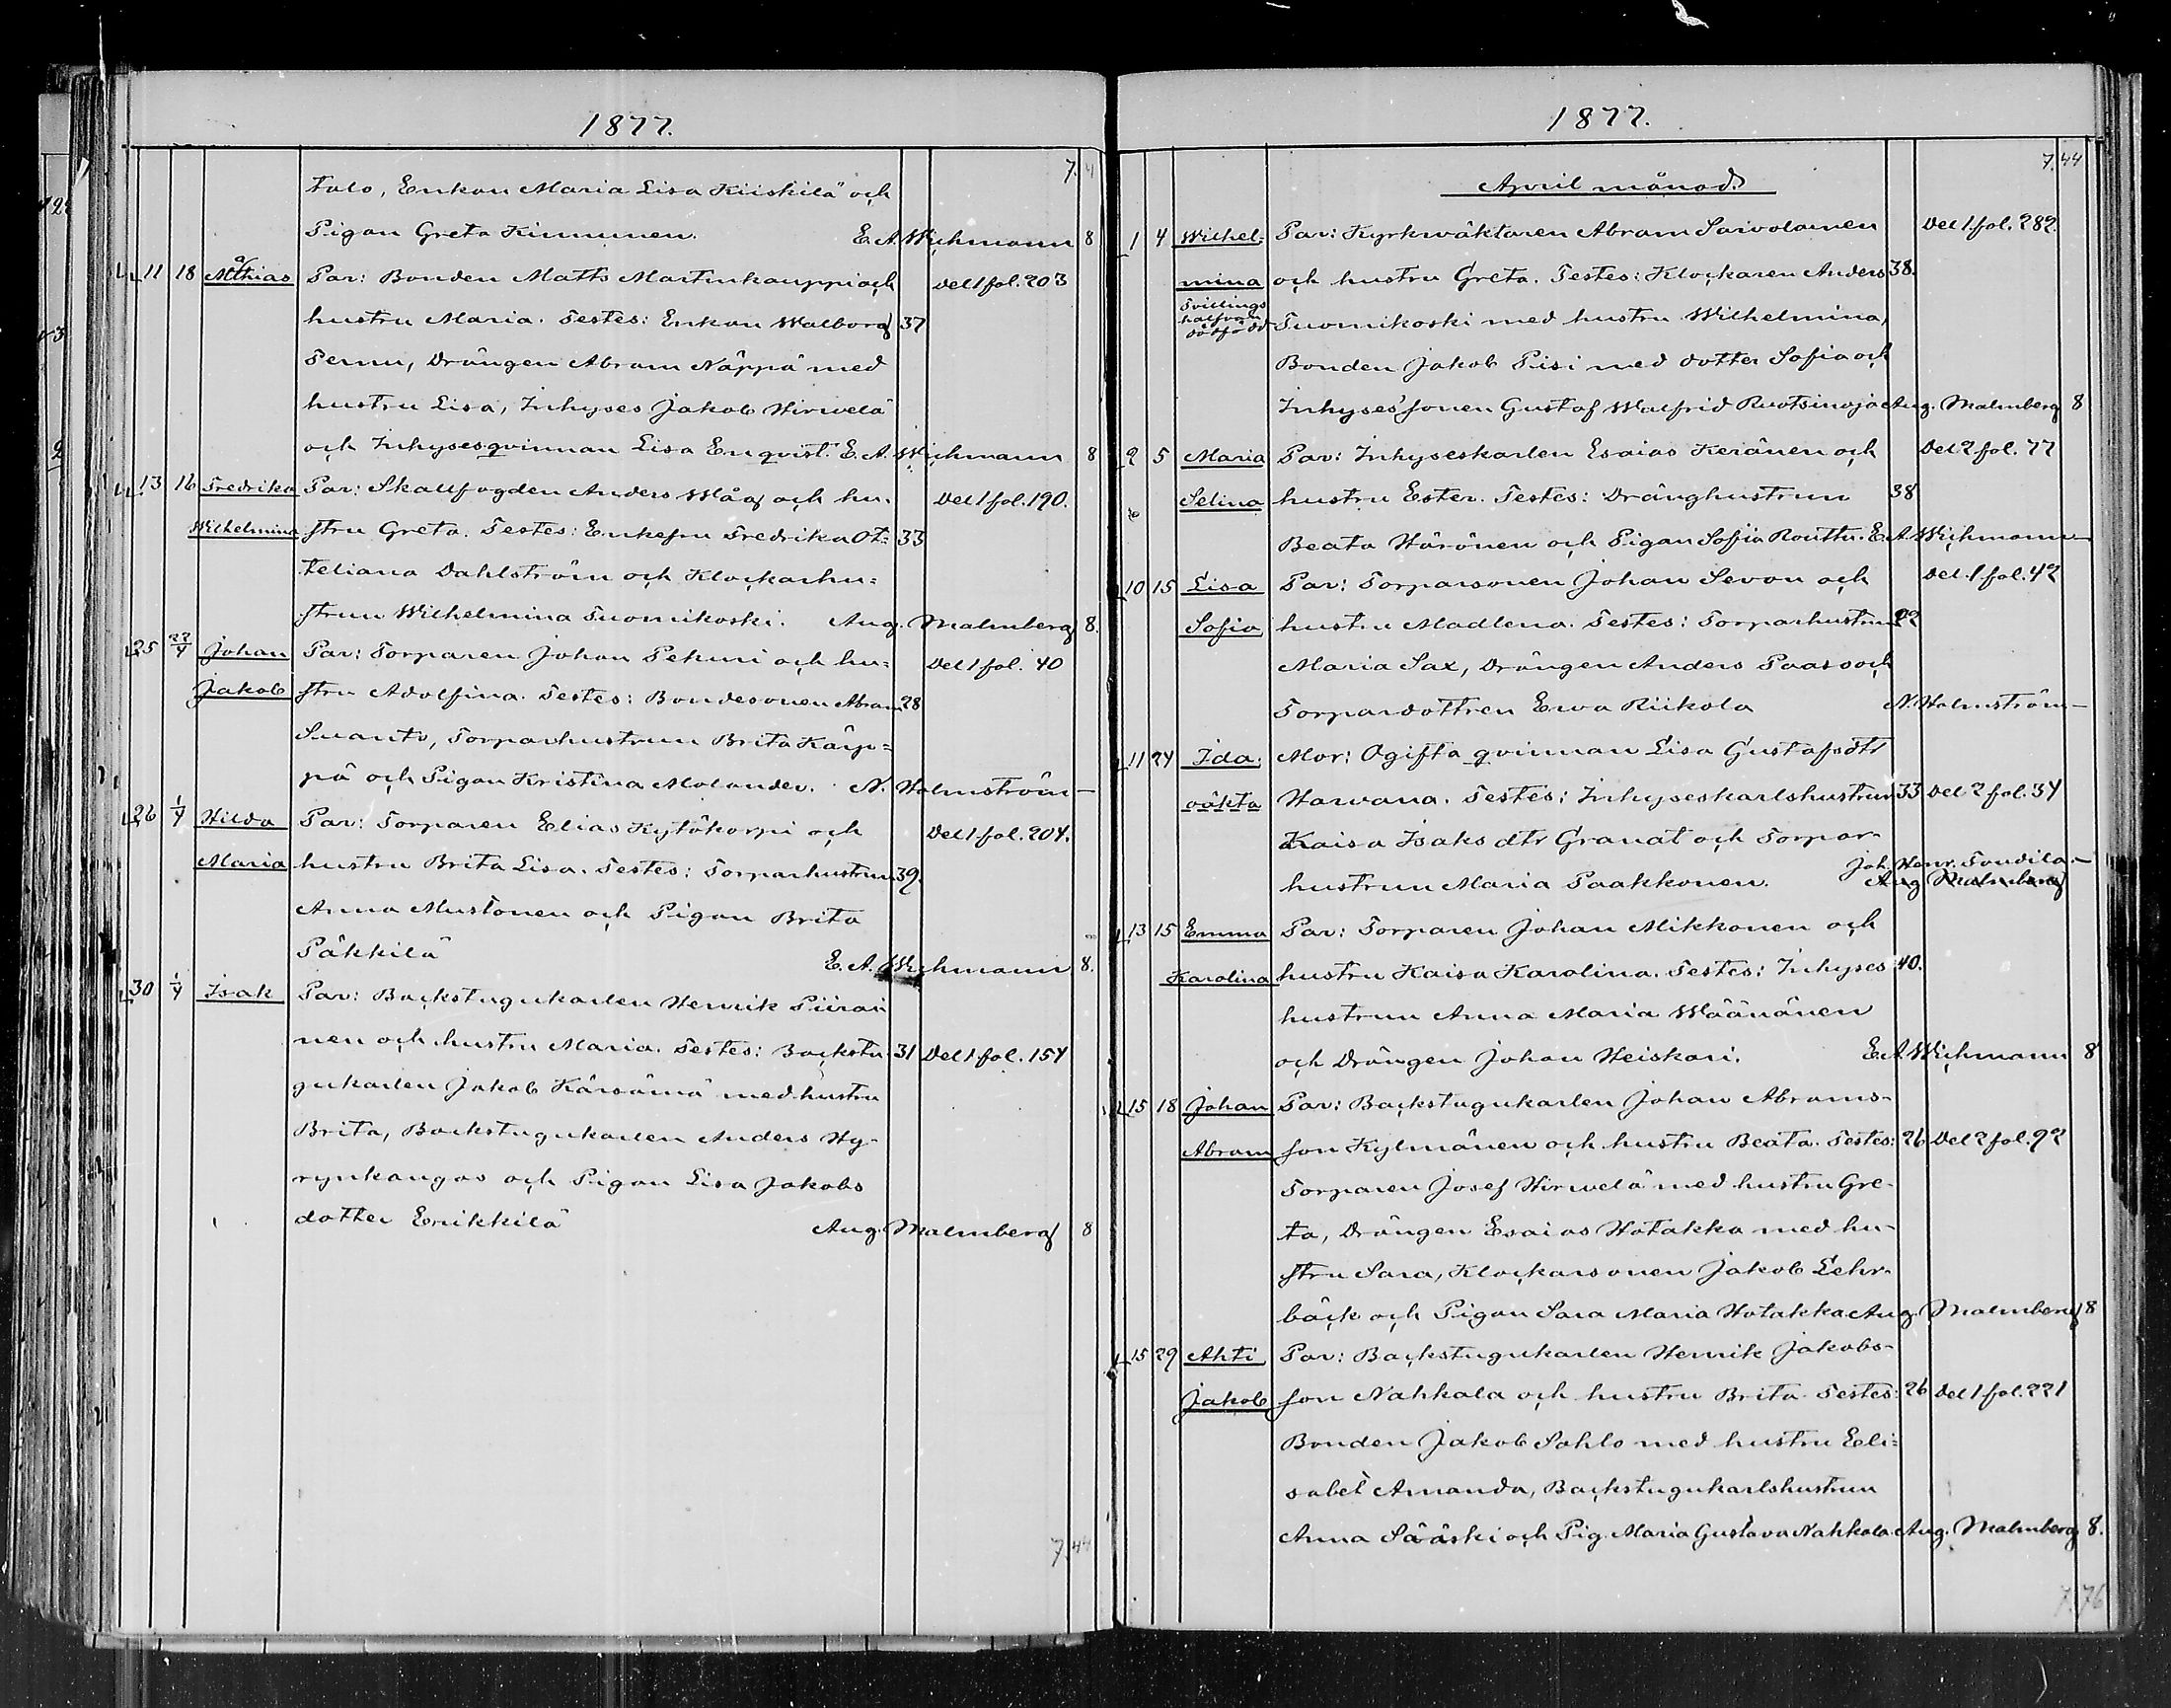 1877.
7.4
Talo, Enkan Maria Lisa Kiiskilä och
Pigan Greta Kinnunen. E. A. Wichmann 8
11 18 Mathias Par: Bonden Matts Martinkauppi och Del 1 fol. 203
hustru Maria. Testes: Enkan Walborg 37
Pernu, Drängen Abram Näppä med
hustru Lisa, Inhyses Jakob Hirwelä
och Inhysesqvinnan Lisa Enqvist. E. A. Wichmann 8
13 16 Fredrika Par: Skallfogden Anders Wåg och hu- Del 1 fol. 190.
Wilhelmina stru Greta. Testes: Enkefru Fredrika Ot= 33
teliana Dahlström och Klockarhu=
strun Wilhelmina Tuomikoski. Aug. Malmberg 8.
25 22/4 Johan Par: Torparen Johan Pekuri och hu= Del 1 fol. 40
Jakob stru Adolfina. Testes: Bondesonen Abram 28
Suanto, Torparhustrun Brita Kärp=
pä och Pigan Kristina Molander. N. Holmström —
26 1/4 Hilda Par: Torparen Elias Kytökorpi och Del 1 fol. 204.
Maria hustru Brita Lisa. Testes: Torparhustrun 39.
Anna Mustonen och Pigan Brita
Päkkilä E. A. Wichmann 8.
30 1/4 Isak Par: Backstugukarlen Henrik Piirai
nen och hustru Maria. Testes: Backstu 31 Del 1 fol. 154
gukarlen Jakob Kärsämä med hustru
Brita, Backstugukarlen Anders Hy-
rynkangas och Pigan Lisa Jakobs
dotter Erikkilä Aug. Malmberg 8
7.44
1877.
7.44
April månad.
1 4 Wilhel- Par: Kyrkwäktaren Abram Saivolainen Del 1 fol. 282.
mina och hustru Greta. Testes: Klockaren Anders 38.
Tvillings
dödfödd Tuomikoski med hustru Wilhelmina,
Bonden Jakob Pisi med dotter Sofia och
Inhyses sonen Gustaf Walfrid Ruotsinoja Aug. Malmberg 8
2 5 Maria Par: Inhyseskarlen Esaias Keränen och Del 2 fol. 77
Selina hustru Ester. Testes: Dränghustrun 38
Beata Härönen och Pigan Sofia Routtu. E A Wichmann —
10 15 Lisa Par: Torparsonen Johan Sevon och Del 1 fol. 42
Sofia hustru Madlena. Testes: Torparhustrun 22
Maria Sax, Drängen Anders Paaso och
Torpardottren Ewa Riikola N. Holmström —
11 24 Ida, Mor: Ogifta qvinnan Lisa Gustafsdtr
oäkta Harvana. Testes: Inhyseskarlshustrun 33 Del 2 fol. 34
Kaisa Isaks dtr Granat och Torpar-
hustrun Maria Paakkonen. Joh. Henr. Tendila. —
Aug Malmberg
13 15 Emma Par: Torparen Johan Mikkonen och
Karolina hustru Kaisa Karolina. Testes: Inhyses 40.
hustrun Anna Maria Wäänänen
och Drängen Johan Heiskari. E. A Wichmann 8
15 18 Johan Par: Backstugukarlen Johan Abrams-
Abram son Kylmänen och hustru Beata. Testes: 26 Del 2 fol. 92
Torparen Josef Hirwelä med hustru Gre-
ta, Drängen Esaias Hotakka med hu-
stru Sara, Klockarsonen Jakob Lehr-
bäck och Pigan Sara Maria Hotakka Aug. Malmberg 8
15 29 Ahti Par: Backstugukarlen Henrik Jakobs-
Jakob son Nahkala och hustru Brita. Testes: 26 Del 1 fol. 221
Bonden Jakob Sahlo med hustru Eli=
sabet Amanda, Backstugukarlshustrun
Anna Sääski och Pig. Maria Gustava Nahkala Aug. Malmberg 8.
7.76